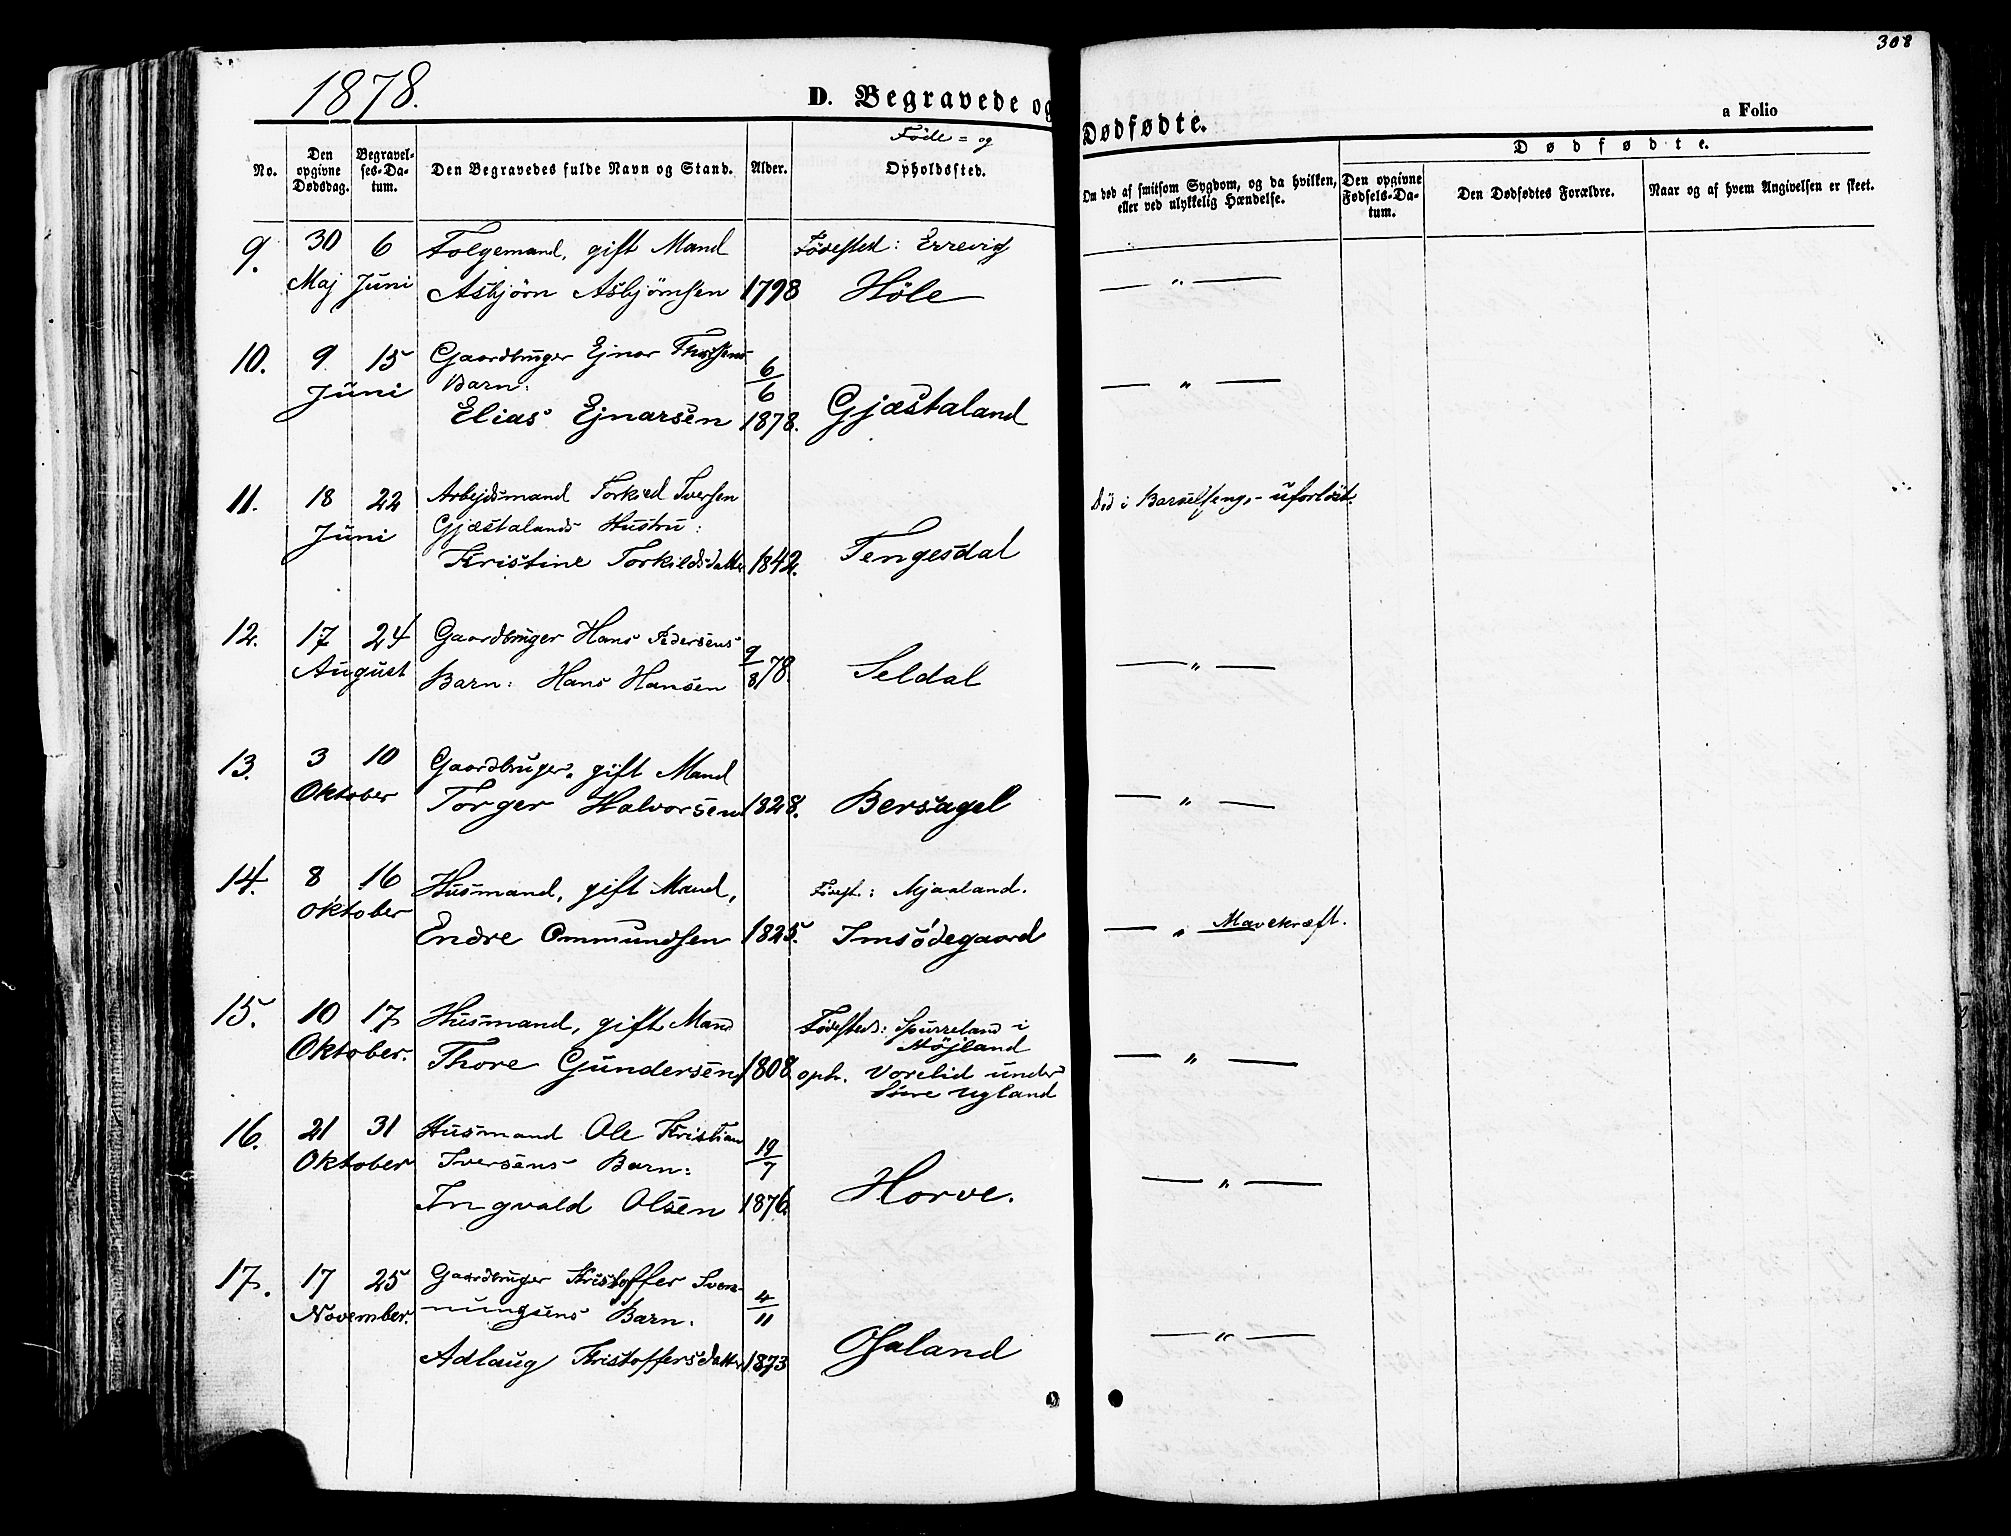 308
1878.
D. Begravede og Dødfødte.
a Folio
No.
Den opgivne Dødsdag.
Begravelses-Datum.
Den Begravedes fulde Navn og Stand.
Alder.
Føde- og
Opholdssted.
Om død af smitsom Sygdom, og da hvilken,
eller ved ulykkelig Hændelse.
Dødfødte.
Den opgivne Fødsels-Datum.
Den Dødfødtes Forældre.
Naar og af hvem Angivelsen er skeet.
9. 30 6 Folgemand, gift Mand Fødested: Errevig
Maj Juni Asbjørn Asbjørnsen 1798 Høle — " —
10. 9 15 Gaardbruger Ejnar 6/6
Juni Barn: — " —
Elias Ejnarsen 1878. Gjæstaland
11. 18 22 Arbejdsmand Torkild Iversen Død i Barselseng, - uforløst.
Juni Gjæstalands Hustru:
Kristine Torkildsdatter 1842. Tengesdal
12. 17 24 Gaardbruger Hans Pedersens 9/8 78.
August Barn: Hans Hansen Seldal — " —
13. 3 10 Gaardbruger, gift Mand
Oktober Torger Halvorsen 1828. Bersagel — " —
14. 8 16 Husmand, gift Mand, Fødest.: Mjaaland.
Oktober Endre Ommundsen 1825. Imsødegaard — " Mavekræft.
15. 10 17 Husmand, gift Mand Fødested: Spurreland i
Højland
Oktober. Thore Gundersen 1808. oph. Vorelid under — " —
Søre Ugland
16. 21 31 Husmand Ole Kristian 19/7
Oktober Iversens Barn:
Ingvald Olsen 1876. Horve. — " —
17. 17 25 Gaardbruger Kristoffer Svem-
November. mungsens Barn. 4/11
Adlaug Kristoffersdatter 1873 Osaland — " —